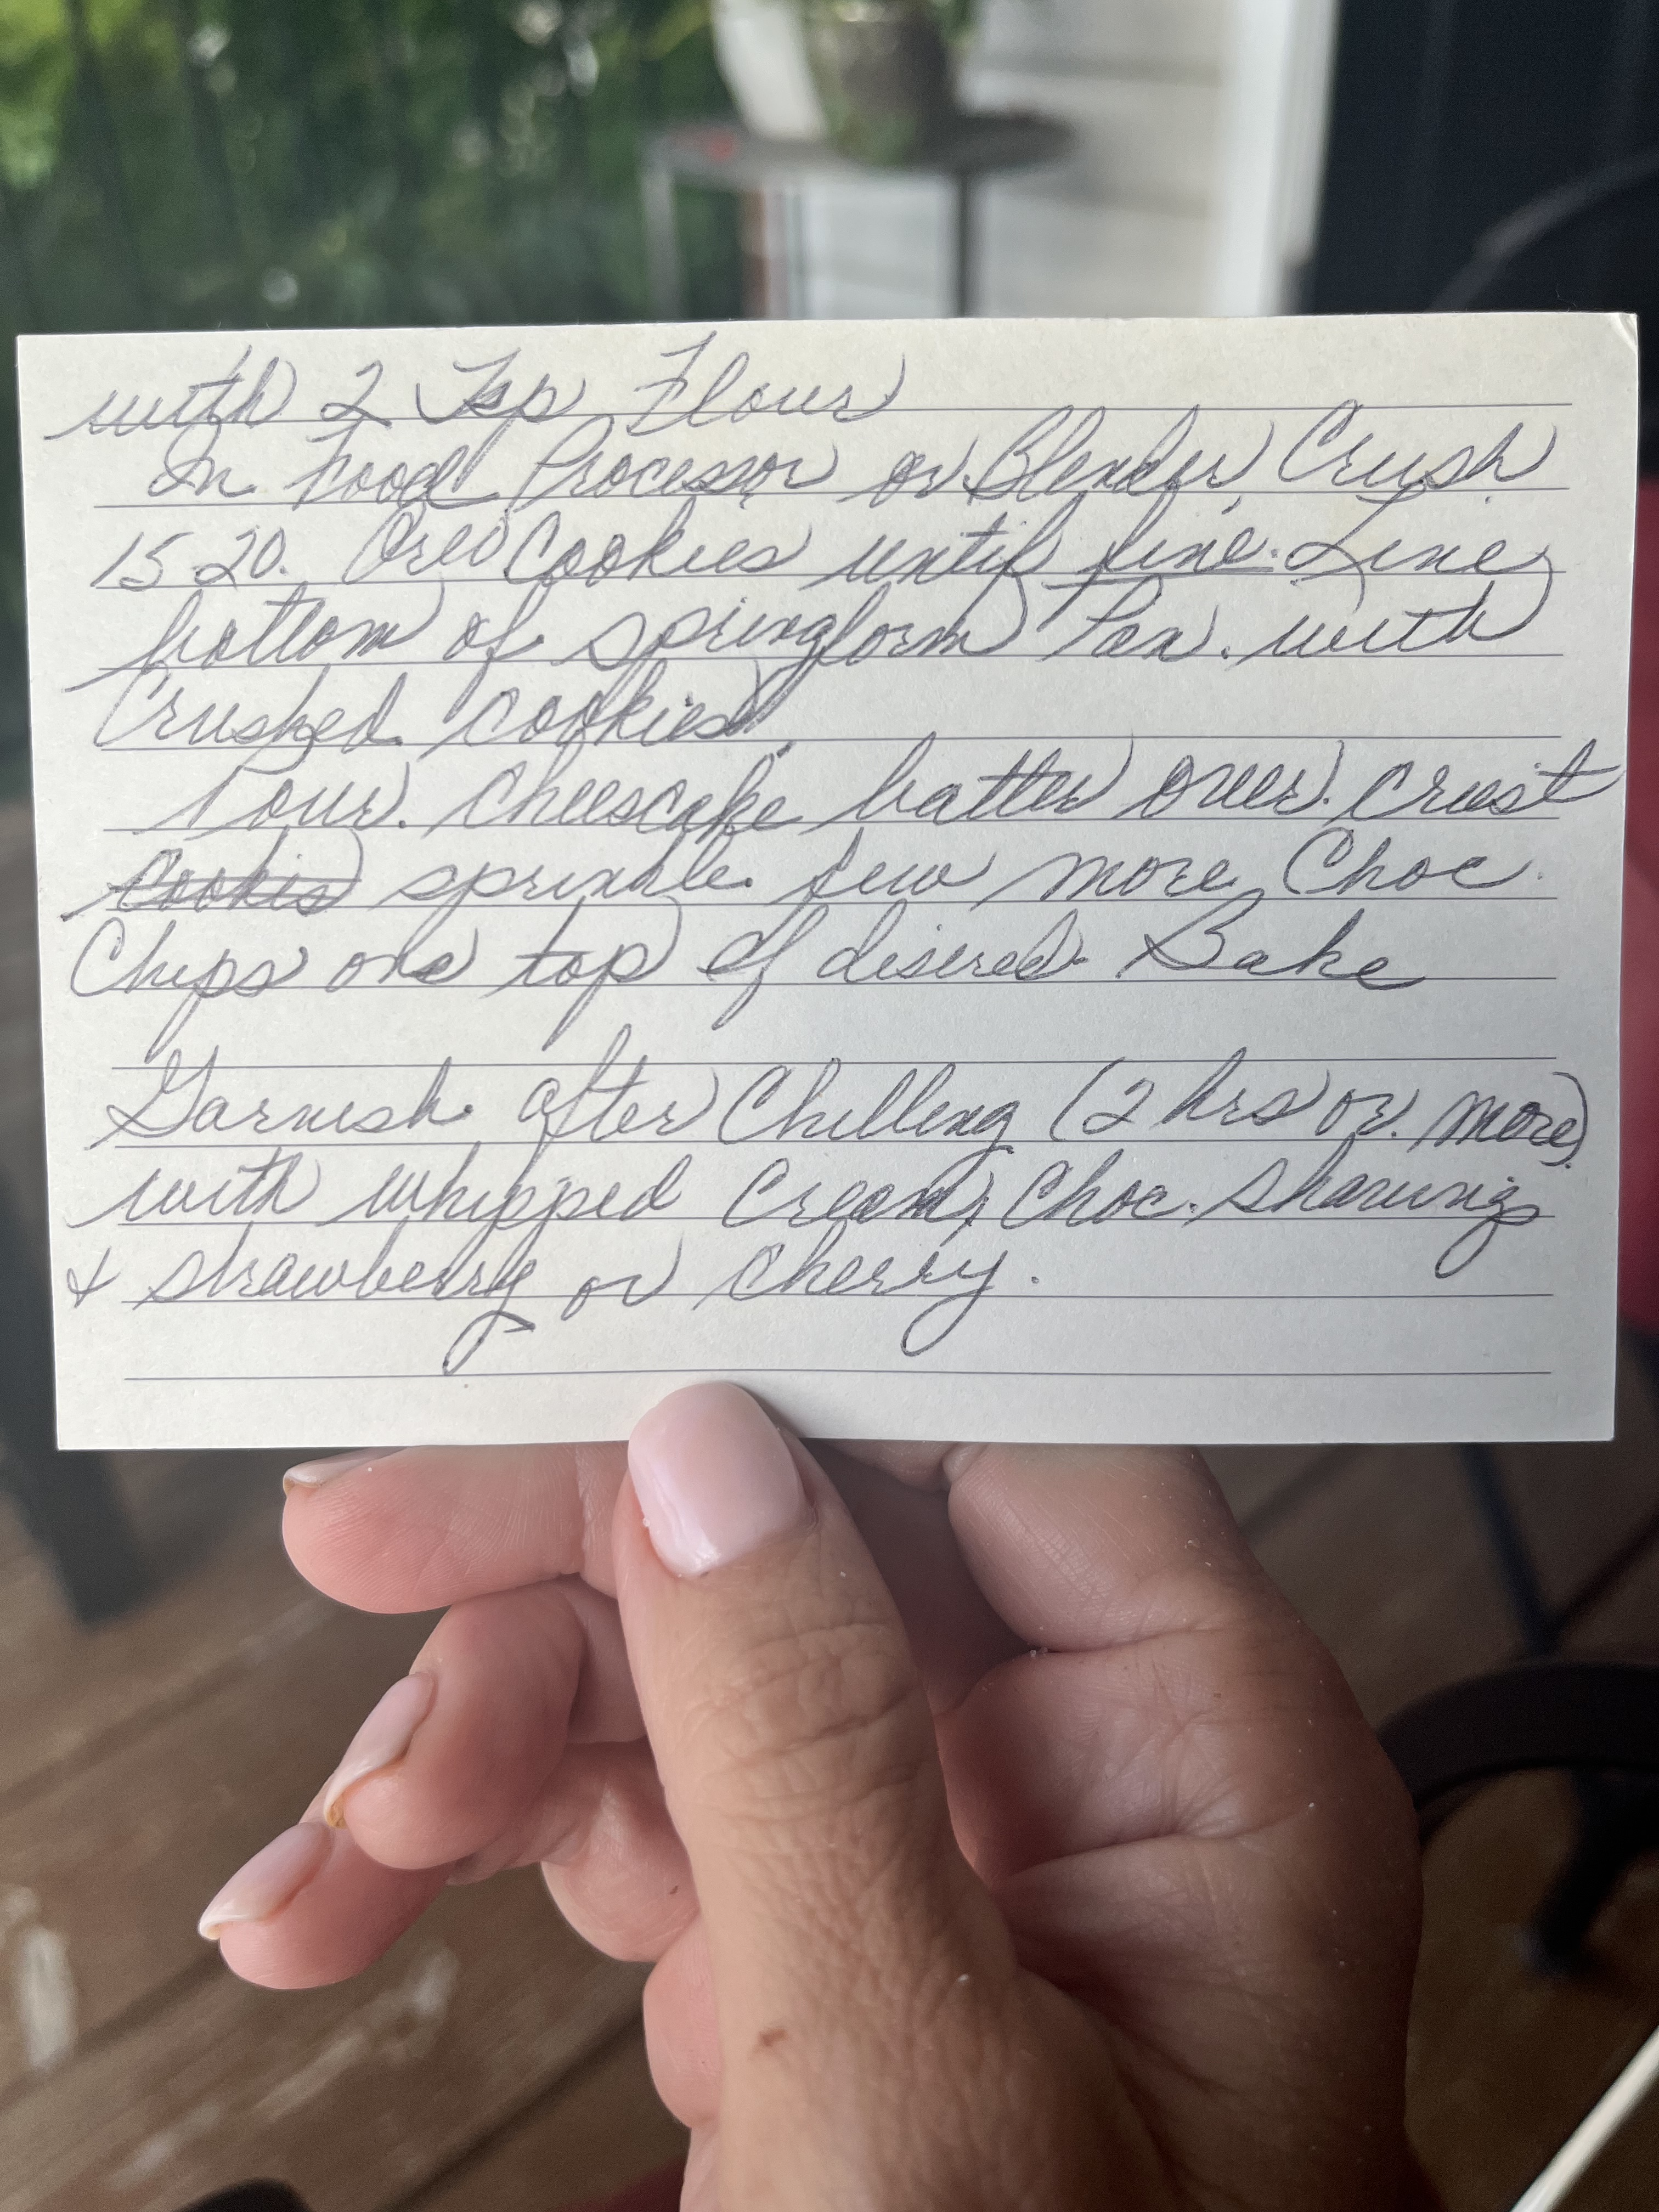 with 2 Tsp Flour
In Food Processor or Blender, Crush
15-20. Oreo Cookies until fine. Line
bottom of springform Pan. with
Crushed cookies.
Pour. Cheescake batter over. crust
cookis sprinkle few more Choc.
Chips one top if disered. Bake
Garnish after Chilling (2 hrs or. more)
with whipped Cream, Choc. Shavings
& strawberry or cherry.